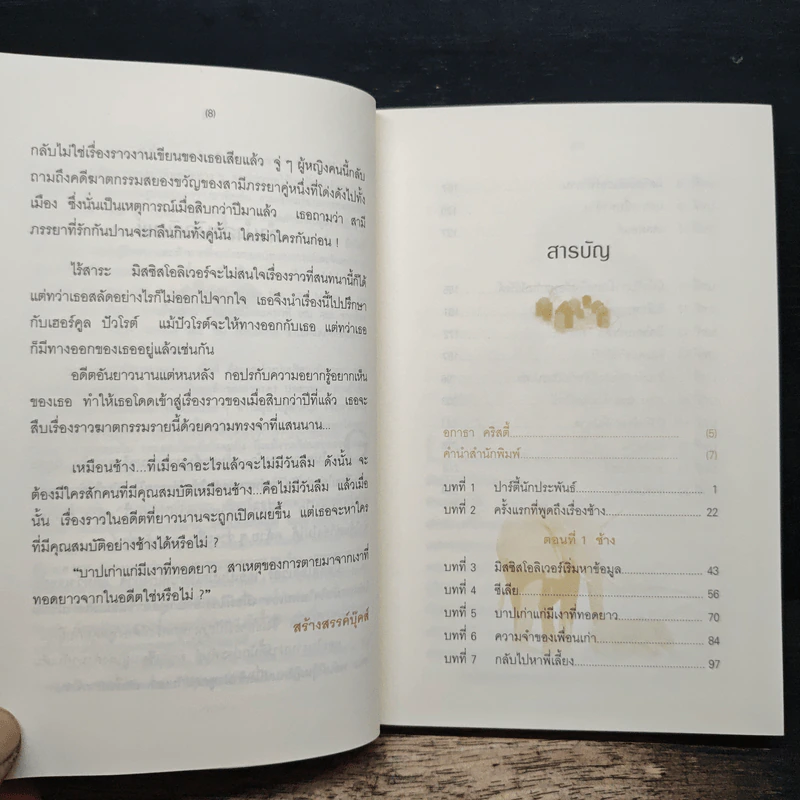 (8)
กลับไม่ใช่เรื่องราวงานเขียนของเธอเสียแล้ว จู่ ๆ ผู้หญิงคนนี้กลับ
ถามถึงคดีฆาตกรรมสยองขวัญของสามีภรรยาคู่หนึ่งที่โด่งดังไปทั้ง
เมือง ซึ่งนั่นเป็นเหตุการณ์เมื่อสิบกว่าปีมาแล้ว เธอถามว่า สามี
ภรรยาที่รักกันปานจะกลืนกินทั้งคู่นั้น ใครฆ่าใครกันก่อน !
ไร้สาระ มิสซิสโอลิเวอร์จะไม่สนใจเรื่องราวที่สนทนานี้ก็ได้
แต่ทว่าเธอสลัดอย่างไรก็ไม่ออกไปจากใจ เธอจึงนำเรื่องนี้ไปปรึกษา
กับเฮอร์คูล ปัวโรต์ แม้ปัวโรต์จะให้ทางออกกับเธอ แต่ทว่าเธอ
ก็มีทางออกของเธออยู่แล้วเช่นกัน
อดีตอันยาวนานแต่หนหลัง กอปรกับความอยากรู้อยากเห็น
ของเธอ ทำให้เธอโดดเข้าสู่เรื่องราวของเมื่อสิบกว่าปีที่แล้ว เธอจะ
สืบเรื่องราวฆาตกรรมรายนี้ด้วยความทรงจำที่แสนนาน...
เหมือนช้าง...ที่เมื่อจำอะไรแล้วจะไม่มีวันลืม ดังนั้น จะ
ต้องมีใครสักคนที่มีคุณสมบัติเหมือนช้าง...คือไม่มีวันลืม แล้วเมื่อ
นั้น เรื่องราวในอดีตที่ยาวนานจะถูกเปิดเผยขึ้น แต่เธอจะหาใคร
ที่มีคุณสมบัติอย่างช้างได้หรือไม่ ?
“บาปเก่าแก่มีเงาที่ทอดยาว สาเหตุของการตายมาจากเงาที่
ทอดยาวจากในอดีตใช่หรือไม่ ?”
สร้างสรรค์บุ๊คส์
สารบัญ
อกาธา คริสตี้ (5)
คำนำสำนักพิมพ์ (7)
บทที่ 1 ปาร์ตี้นักประพันธ์ 1
บทที่ 2 ครั้งแรกที่พูดถึงเรื่องช้าง 22
ตอนที่ 1 ช้าง
บทที่ 3 มิสซิสโอลิเวอร์เริ่มหาข้อมูล 43
บทที่ 4 ซีเลีย 56
บทที่ 5 บาปเก่าแก่มีเงาที่ทอดยาว 70
บทที่ 6 ความจำของเพื่อนเก่า 84
บทที่ 7 กลับไปหาพี่เลี้ยง 97